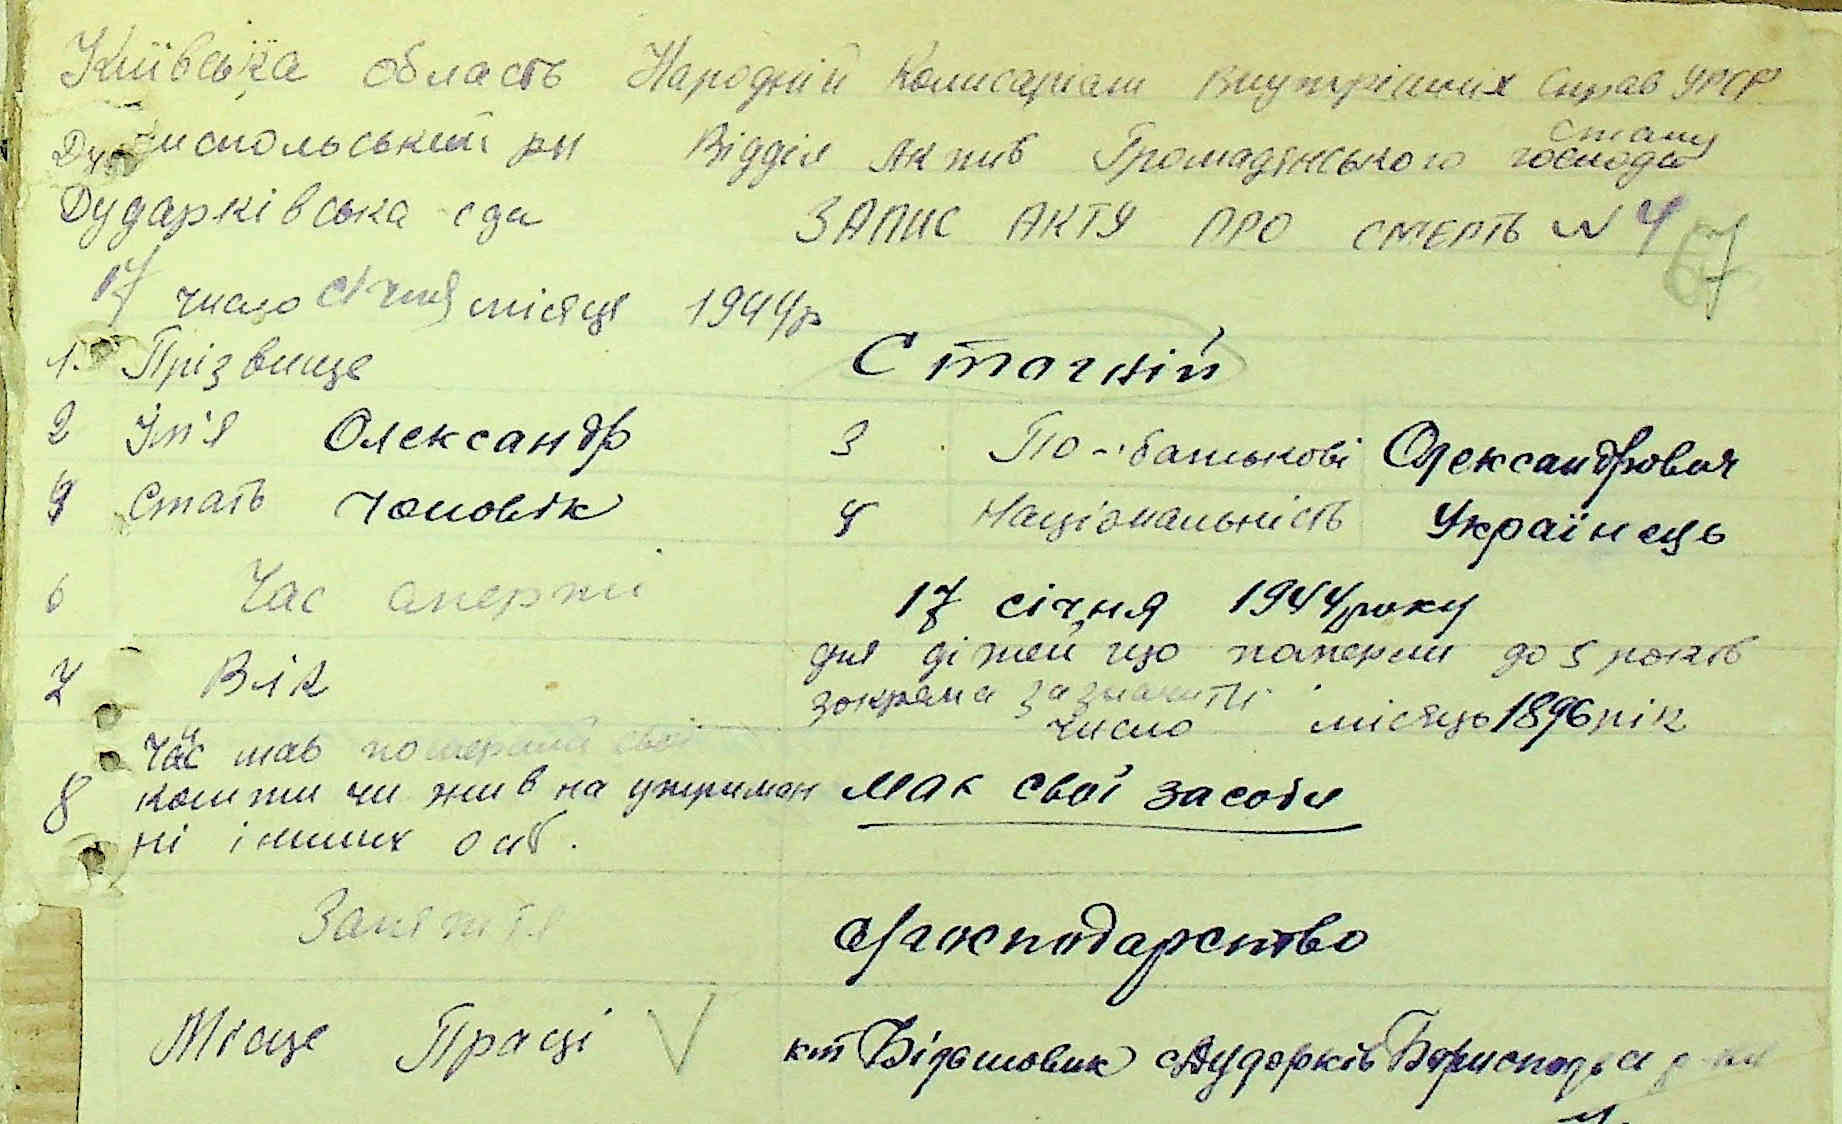 Київська область Народний Комисаріат Внутрішніх Справ УРСР
Бориспольський рн Відділ Актив Громадянського стану
Дударківська с/да ЗАПИС АКТУ ПРО СМЕРТЬ № 4
67
17 число січня місяця 1944р
1. Прізвище Стогній
2 Ім'я Олександр 3 По-батькові Олександрович
4 Стать Чоловік 5 Національність Українець
6 Час смерти 17 січня 1944 року
7 Вік для дітей що померли до 5 років
зокрема зазначити
число місяць 1896 рік
Чи мав померший свої
8 кошти чи жив на утриман мав свої засоби
ні інших осіб.
Заняття с/господарство
Місце Праці кт Більшовик с Дударків Бориспольс р-ну